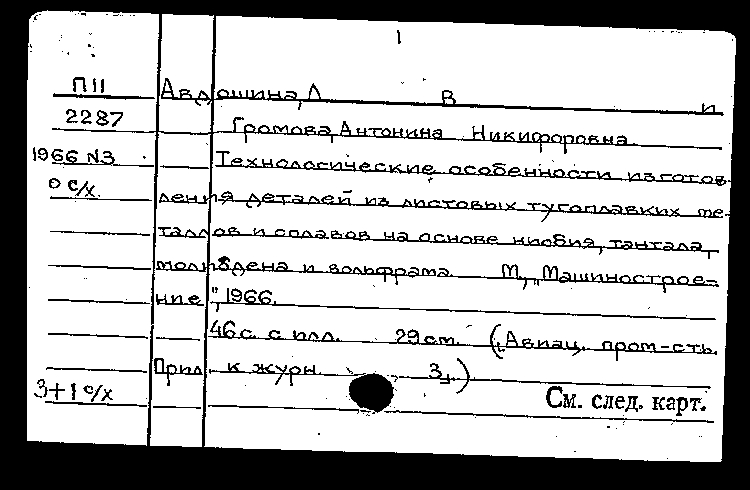 1
П11 Авдюшина, Л В и
2287 Громова, Антонина Никифоровна.
1966 №3 Технологические особенности изготов-
0 с/х. ления деталей из листовых тугоплавких ме-
таллов и сплавов на основе ниобия, тантала,
молибдена и вольфрама. М., "Машинострое-
ние", 1966.
46 с. с илл. 29 см. (Авиац. пром-сть.
Прил. к журн. 3.)
3+1 с/х См. след. карт.